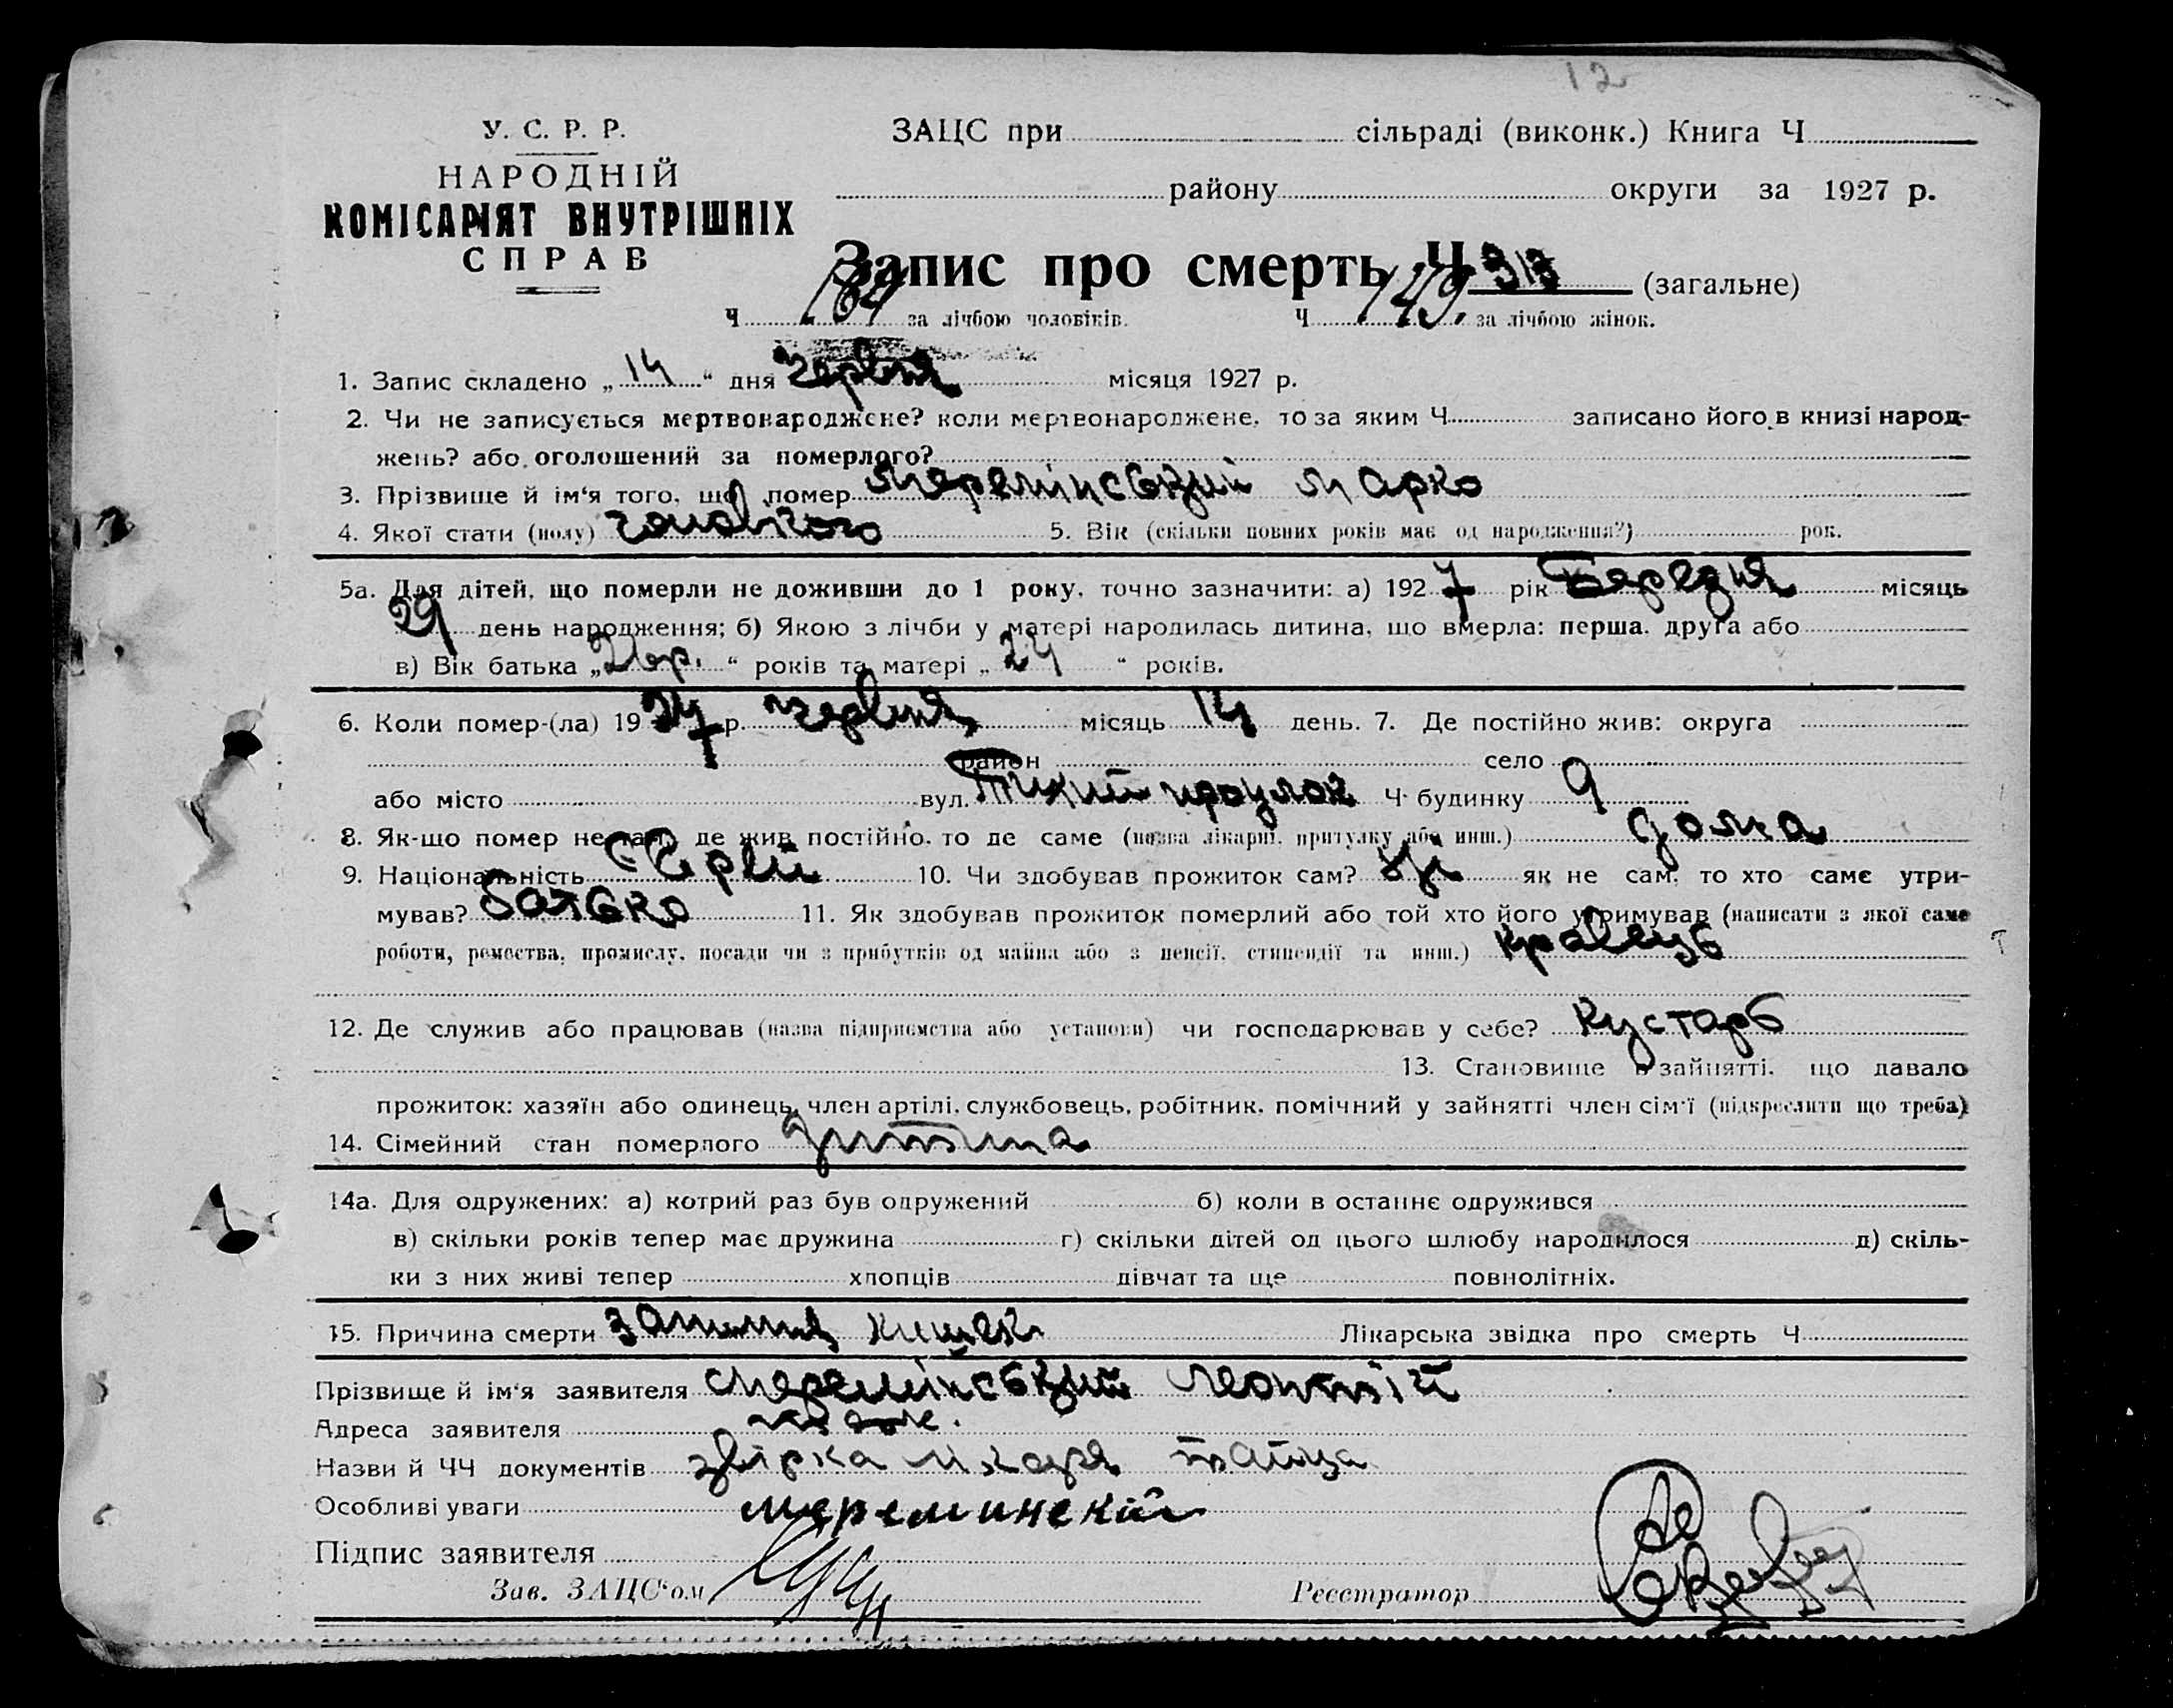 12
У. С. Р. Р.
НАРОДНІЙ
КОМІСАРІЯТ ВНУТРІШНІХ
СПРАВ
ЗАЦС при сільраді (виконк.) Книга Ч
району округи за 1927 р.
Запис про смерть Ч 313 (загальне)
Ч 164 за лічбою чоловіків. Ч 149. за лічбою жінок.
1. Запис складено „14“ дня червня місяця 1927 р.
2. Чи не записується мертвонароджене? коли мертвонароджене, то за яким Ч записано його в книзі народ-
жень? або оголошений за померлого?
3. Прізвище й ім'я того, що помер Мереминський Марко
4. Якої стати (полу) чоловічого 5. Вік (скільки повних років має од народження?) рок.
5а. Для дітей, що померли не доживши до 1 року, точно зазначити: а) 1927 рік Березня місяць
29 день народження; б) Якою з лічби у матері народилась дитина, що вмерла: перша, друга або
в) Вік батька „ “ років та матері „24“ років.
6. Коли помер-(ла) 1927 р. червня місяць 14 день. 7. Де постійно жив: округа
район село
або місто вул. Тихий проулок Ч будинку 9
8. Як-що помер не там, де жив постійно, то де саме (назва лікарні, притулку або инш.) дома
9. Національність Єврей 10. Чи здобував прожиток сам? Ні як не сам, то хто саме утри-
мував? батько 11. Як здобував прожиток померлий або той хто його утримував (написати з якої саме
роботи, ремества, промислу, посади чи з прибутків од майна або з пенсії, стипендії та инш.) кравець
12. Де служив або працював (назва підприємства або установи) чи господарював у себе? кустарь
13. Становище в зайнятті, що давало
прожиток: хазяїн або одинець, член артілі, службовець, робітник, помічний у зайнятті член сім'ї (підкреслити що треба)
14. Сімейний стан померлого дитина
14а. Для одружених: а) котрий раз був одружений б) коли в останнє одружився
в) скільки років тепер має дружина г) скільки дітей од цього шлюбу народилося д) скіль-
ки з них живі тепер хлопців дівчат та ще повнолітніх.
15. Причина смерти кишек Лікарська звідка про смерть Ч
Прізвище й ім'я заявителя Мереминський Леонтій
Адреса заявителя
Назви й ЧЧ документів лікаря
Особливі уваги Мереминский
Підпис заявителя
Зав. ЗАЦС'ом Реєстратор